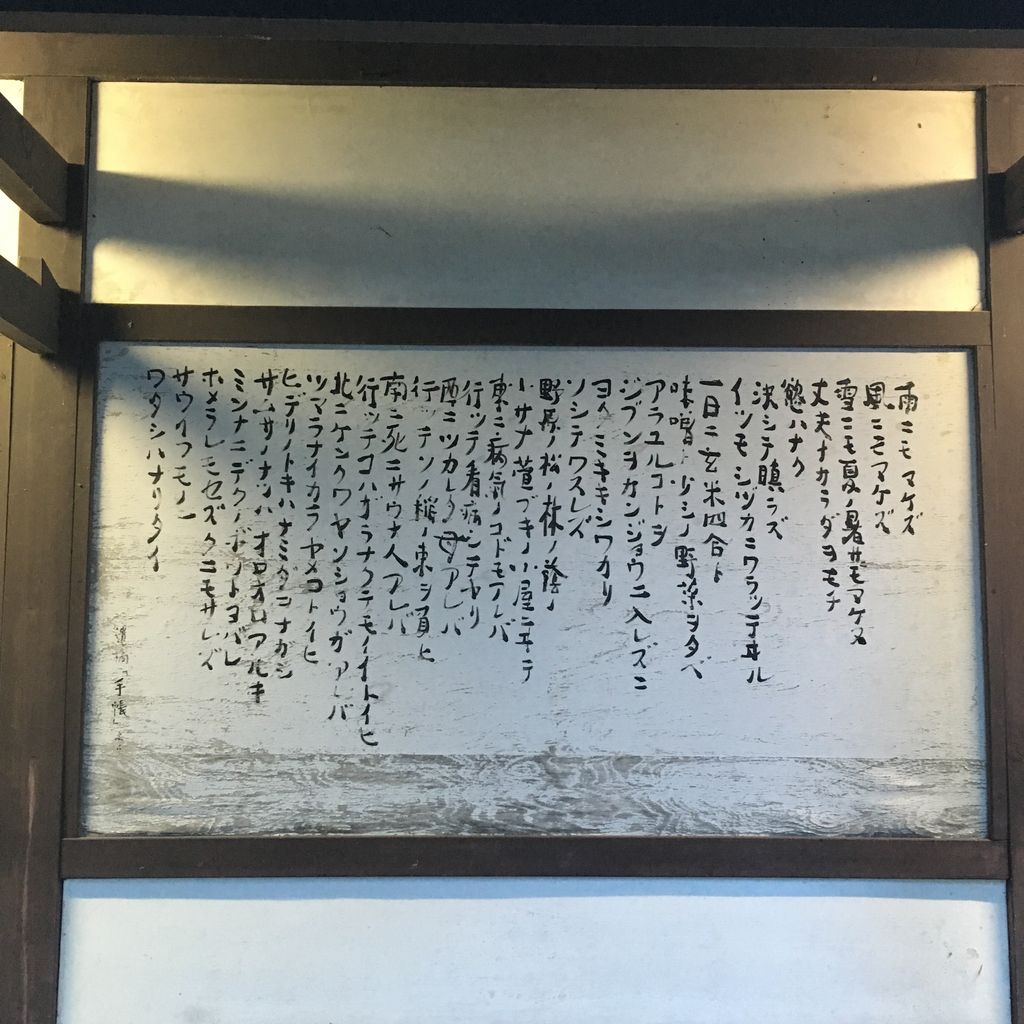 雨ニモマケズ
風ニモマケズ
雪ニモ夏ノ暑サニモマケヌ
丈夫ナカラダヲモチ
慾ハナク
決シテ瞋ラズ
イツモシヅカニワラッテヰル
一日ニ玄米四合ト
味噌ト少シノ野菜ヲタベ
アラユルコトヲ
ジブンヲカンジョウニ入レズニ
ヨクミキキシワカリ
ソシテワスレズ
野原ノ松ノ林ノ蔭ノ
小サナ萱ブキノ小屋ニヰテ
東ニ病気ノコドモアレバ
行ッテ看病シテヤリ
西ニツカレタ母アレバ
行ッテソノ稲ノ束ヲ負ヒ
南ニ死ニサウナ人アレバ
行ッテコハガラナクテモイイトイヒ
北ニケンクヮヤソショウガアレバ
ツマラナイカラヤメロトイヒ
ヒデリノトキハナミダヲナガシ
サムサノナツハオロオロアルキ
ミンナニデクノボウトヨバレ
ホメラレモセズクニモサレズ
サウイフモノニ
ワタシハナリタイ
遺稿「手帳」より